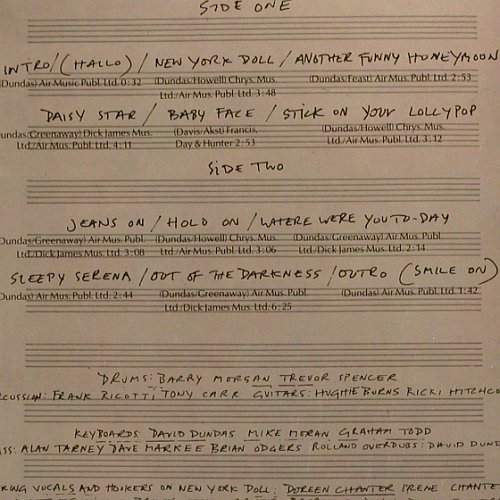 SIDE ONE
INTRO/(HALLO)/NEW YORK DOLL/ANOTHER FUNNY HONEYMOON
(Dundas) Air Music Publ. Ltd. 0:32 (Dundas/Howell) Chrys. Mus. (Dundas/Feast) Air Mus. Publ. Ltd. 2:53
Ltd./Air Mus. Publ. Ltd. 3:48
DAISY STAR/BABY FACE/STICK ON YOUR LOLLYPOP
undas/Greenaway) Dick James Mus. (Davis/Akst) Francis, (Dundas/Howell) Chrys. Mus.
Ltd./Air Mus. Publ. Ltd. 4:11 Day & Hunter 2:53 Ltd./Air Mus. Publ. Ltd. 3:12
SIDE TWO
JEANS ON/HOLD ON/WHERE WERE YOU TO-DAY
Dundas/Greenaway) Air Mus. Publ. (Dundas/Howell) Chrys. Mus. (Dundas/Greenaway) Air Mus. Publ.
Ltd./Dick James Mus. Ltd. 3:08 Ltd./Air Mus. Publ. Ltd. 3:06 Ltd./Dick James Mus. Ltd. 2:14
SLEEPY SERENA/OUT OF THE DARKNESS/OUTRO (SMILE ON)
Dundas) Air Mus. Publ. Ltd. 2:44 (Dundas/Greenaway) Air Mus. Publ. (Dundas) Air Mus. Publ. Ltd. 1:42
Ltd./Dick James Mus. Ltd. 6:25
DRUMS: BARRY MORGAN TREVOR SPENCER
RCUSSION: FRANK RICOTTI TONY CARR GUITARS: HUGHIE BURNS RICKI HITCHCO
KEYBOARDS: DAVID DUNDAS MIKE MORAN GRAHAM TODD
ASS: ALAN TARNEY DAVE MARKEE BRIAN ODGERS ROLLAND OVERDUBS: DAVID DUND
KING VOCALS AND HOOKERS ON NEW YORK DOLL: DOREEN CHANTER IRENE CHANTE